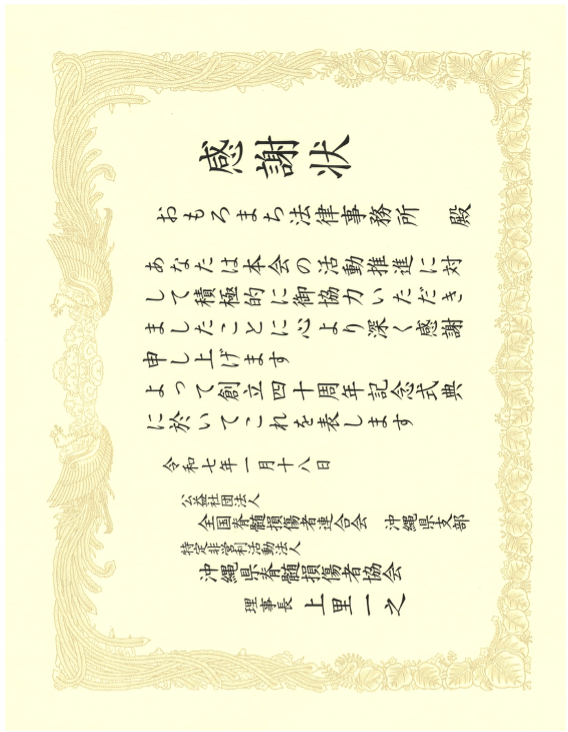 感謝状
おもろまち法律事務所 殿
あなたは本会の活動推進に対
して積極的に御協力いただき
ましたことに心より深く感謝
申し上げます
よって創立四十周年記念式典
に於いてこれを表します
令和七年一月十八日
公益社団法人
全国脊髄損傷者連合会 沖縄県支部
特定非営利活動法人
沖縄県脊髄損傷者協会
理事長 上里一之